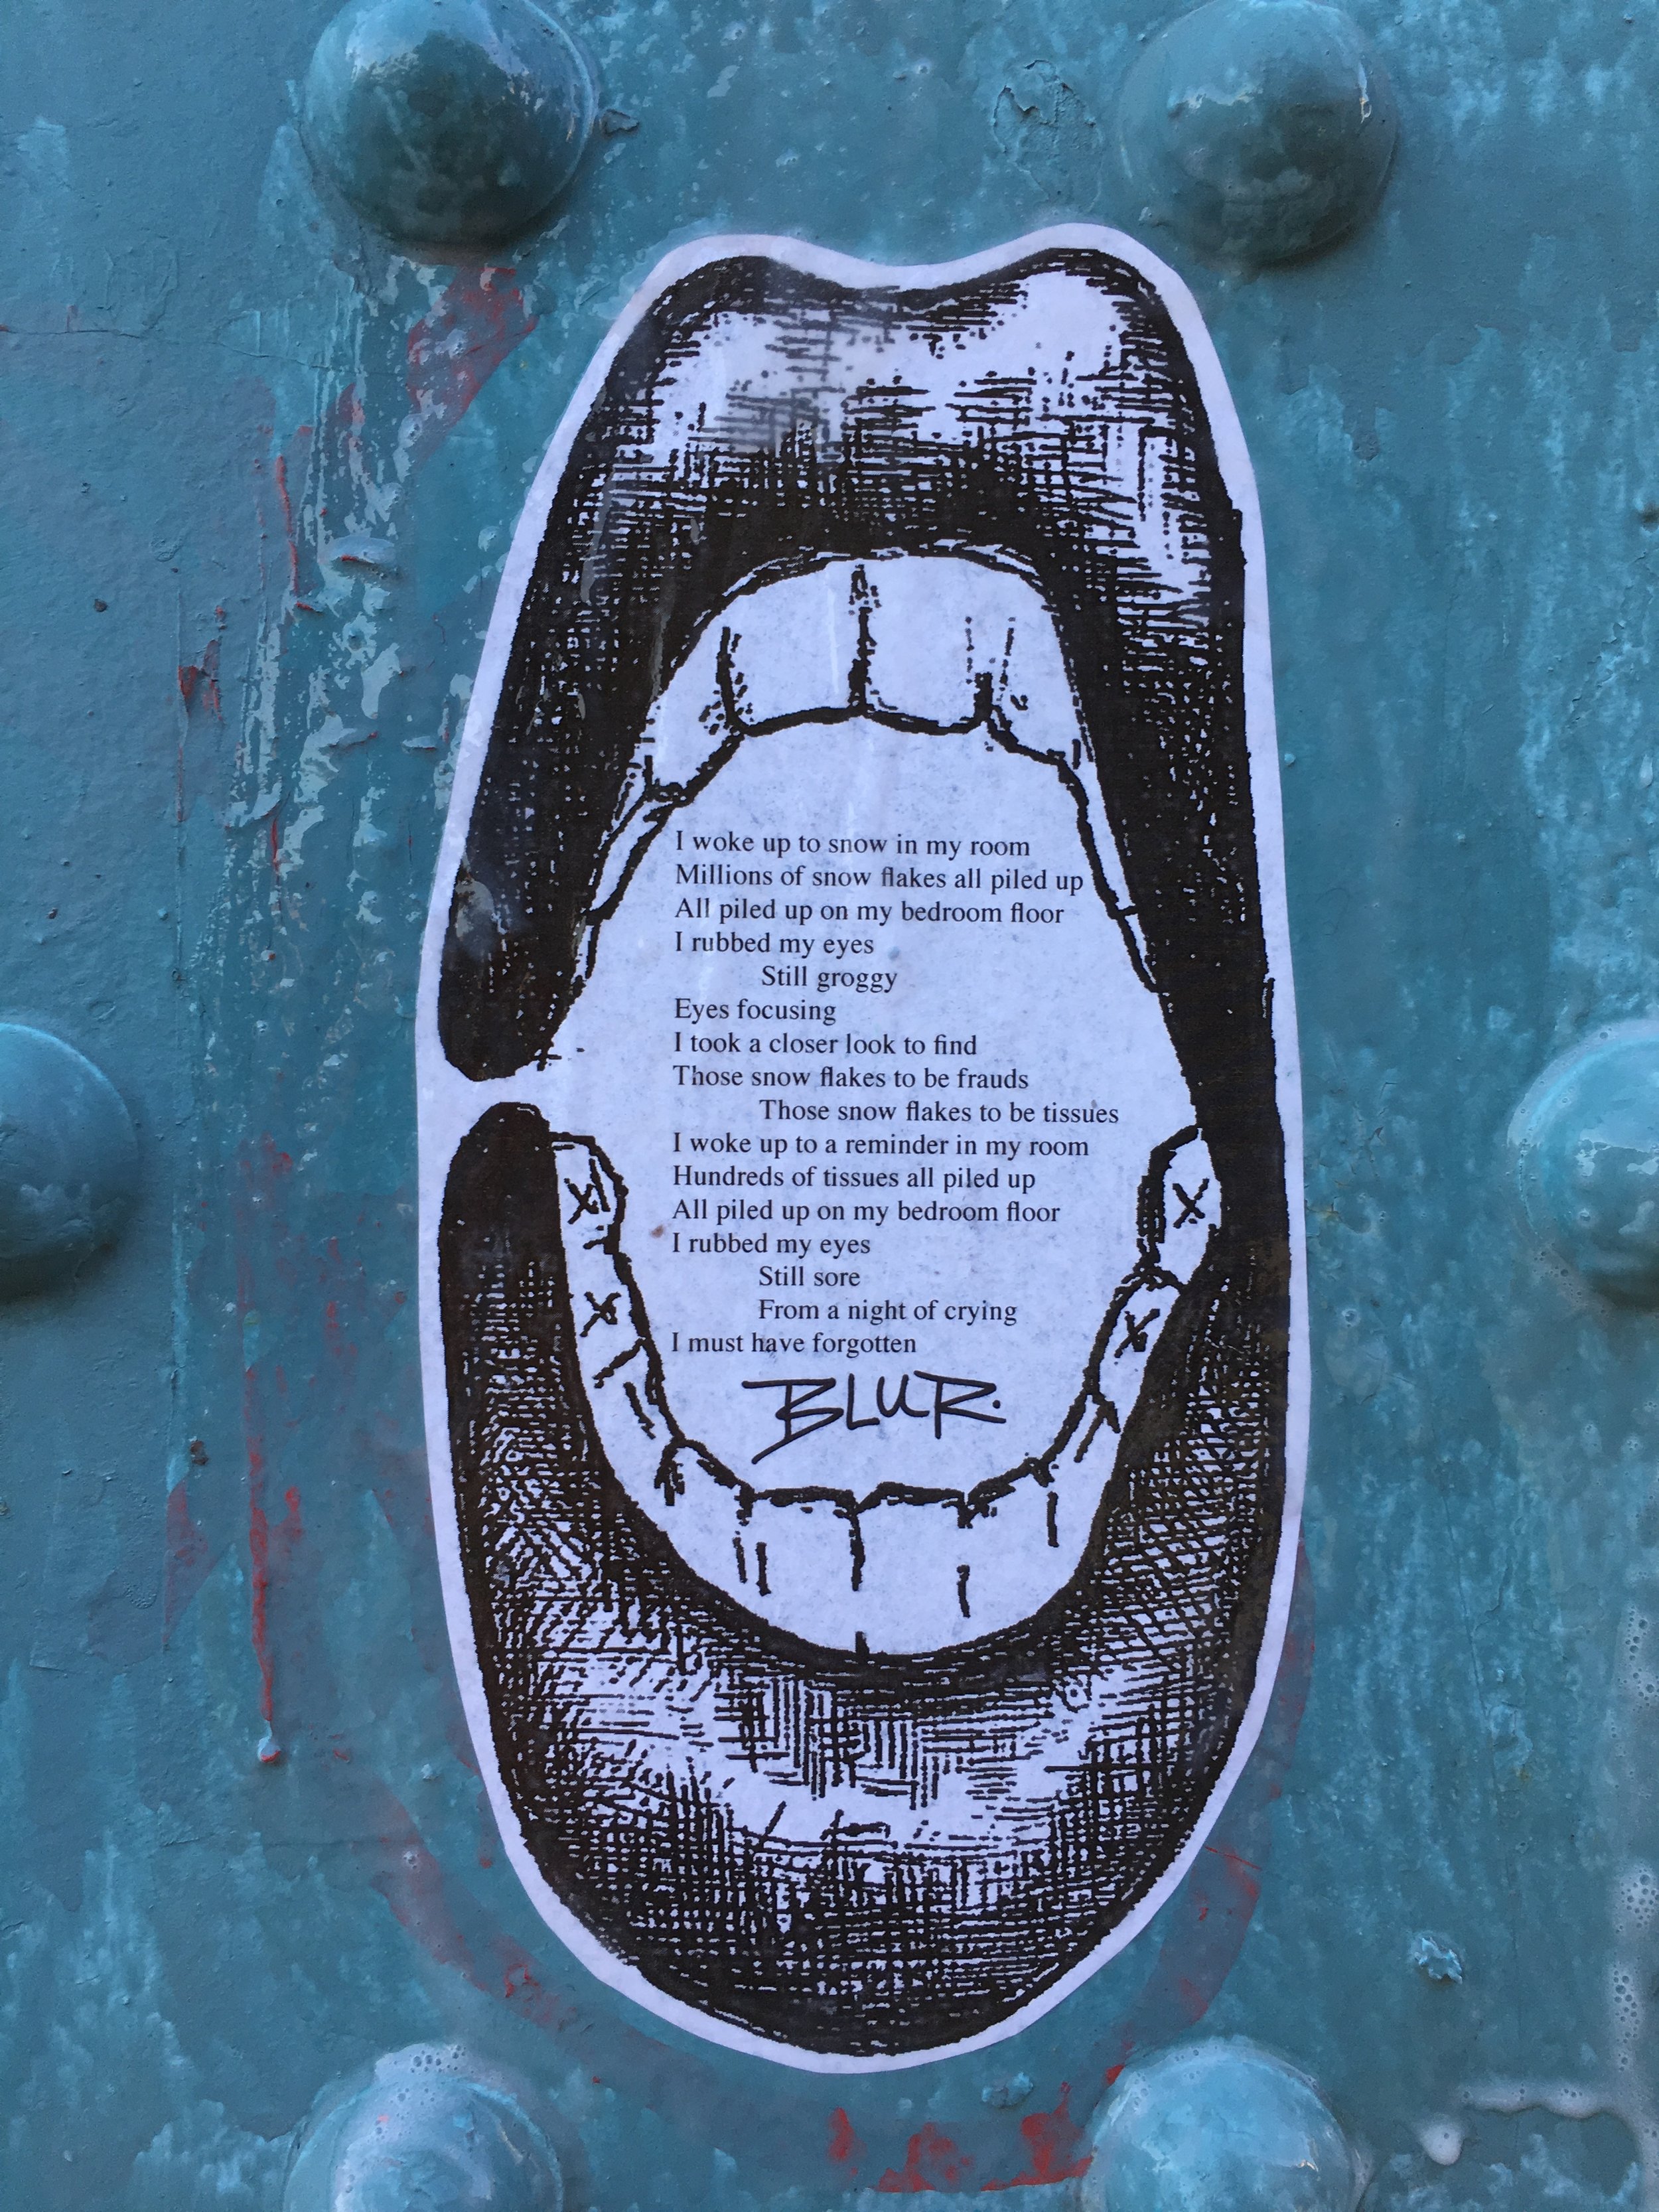 I woke up to snow in my room
Millions of snow flakes all piled up
All piled up on my bedroom floor
I rubbed my eyes
Still groggy
Eyes focusing
I took a closer look to find
Those snow flakes to be frauds
Those snow flakes to be tissues
I woke up to a reminder in my room
Hundreds of tissues all piled up
All piled up on my bedroom floor
I rubbed my eyes
Still sore
From a night of crying
I must have forgotten
BLUR.